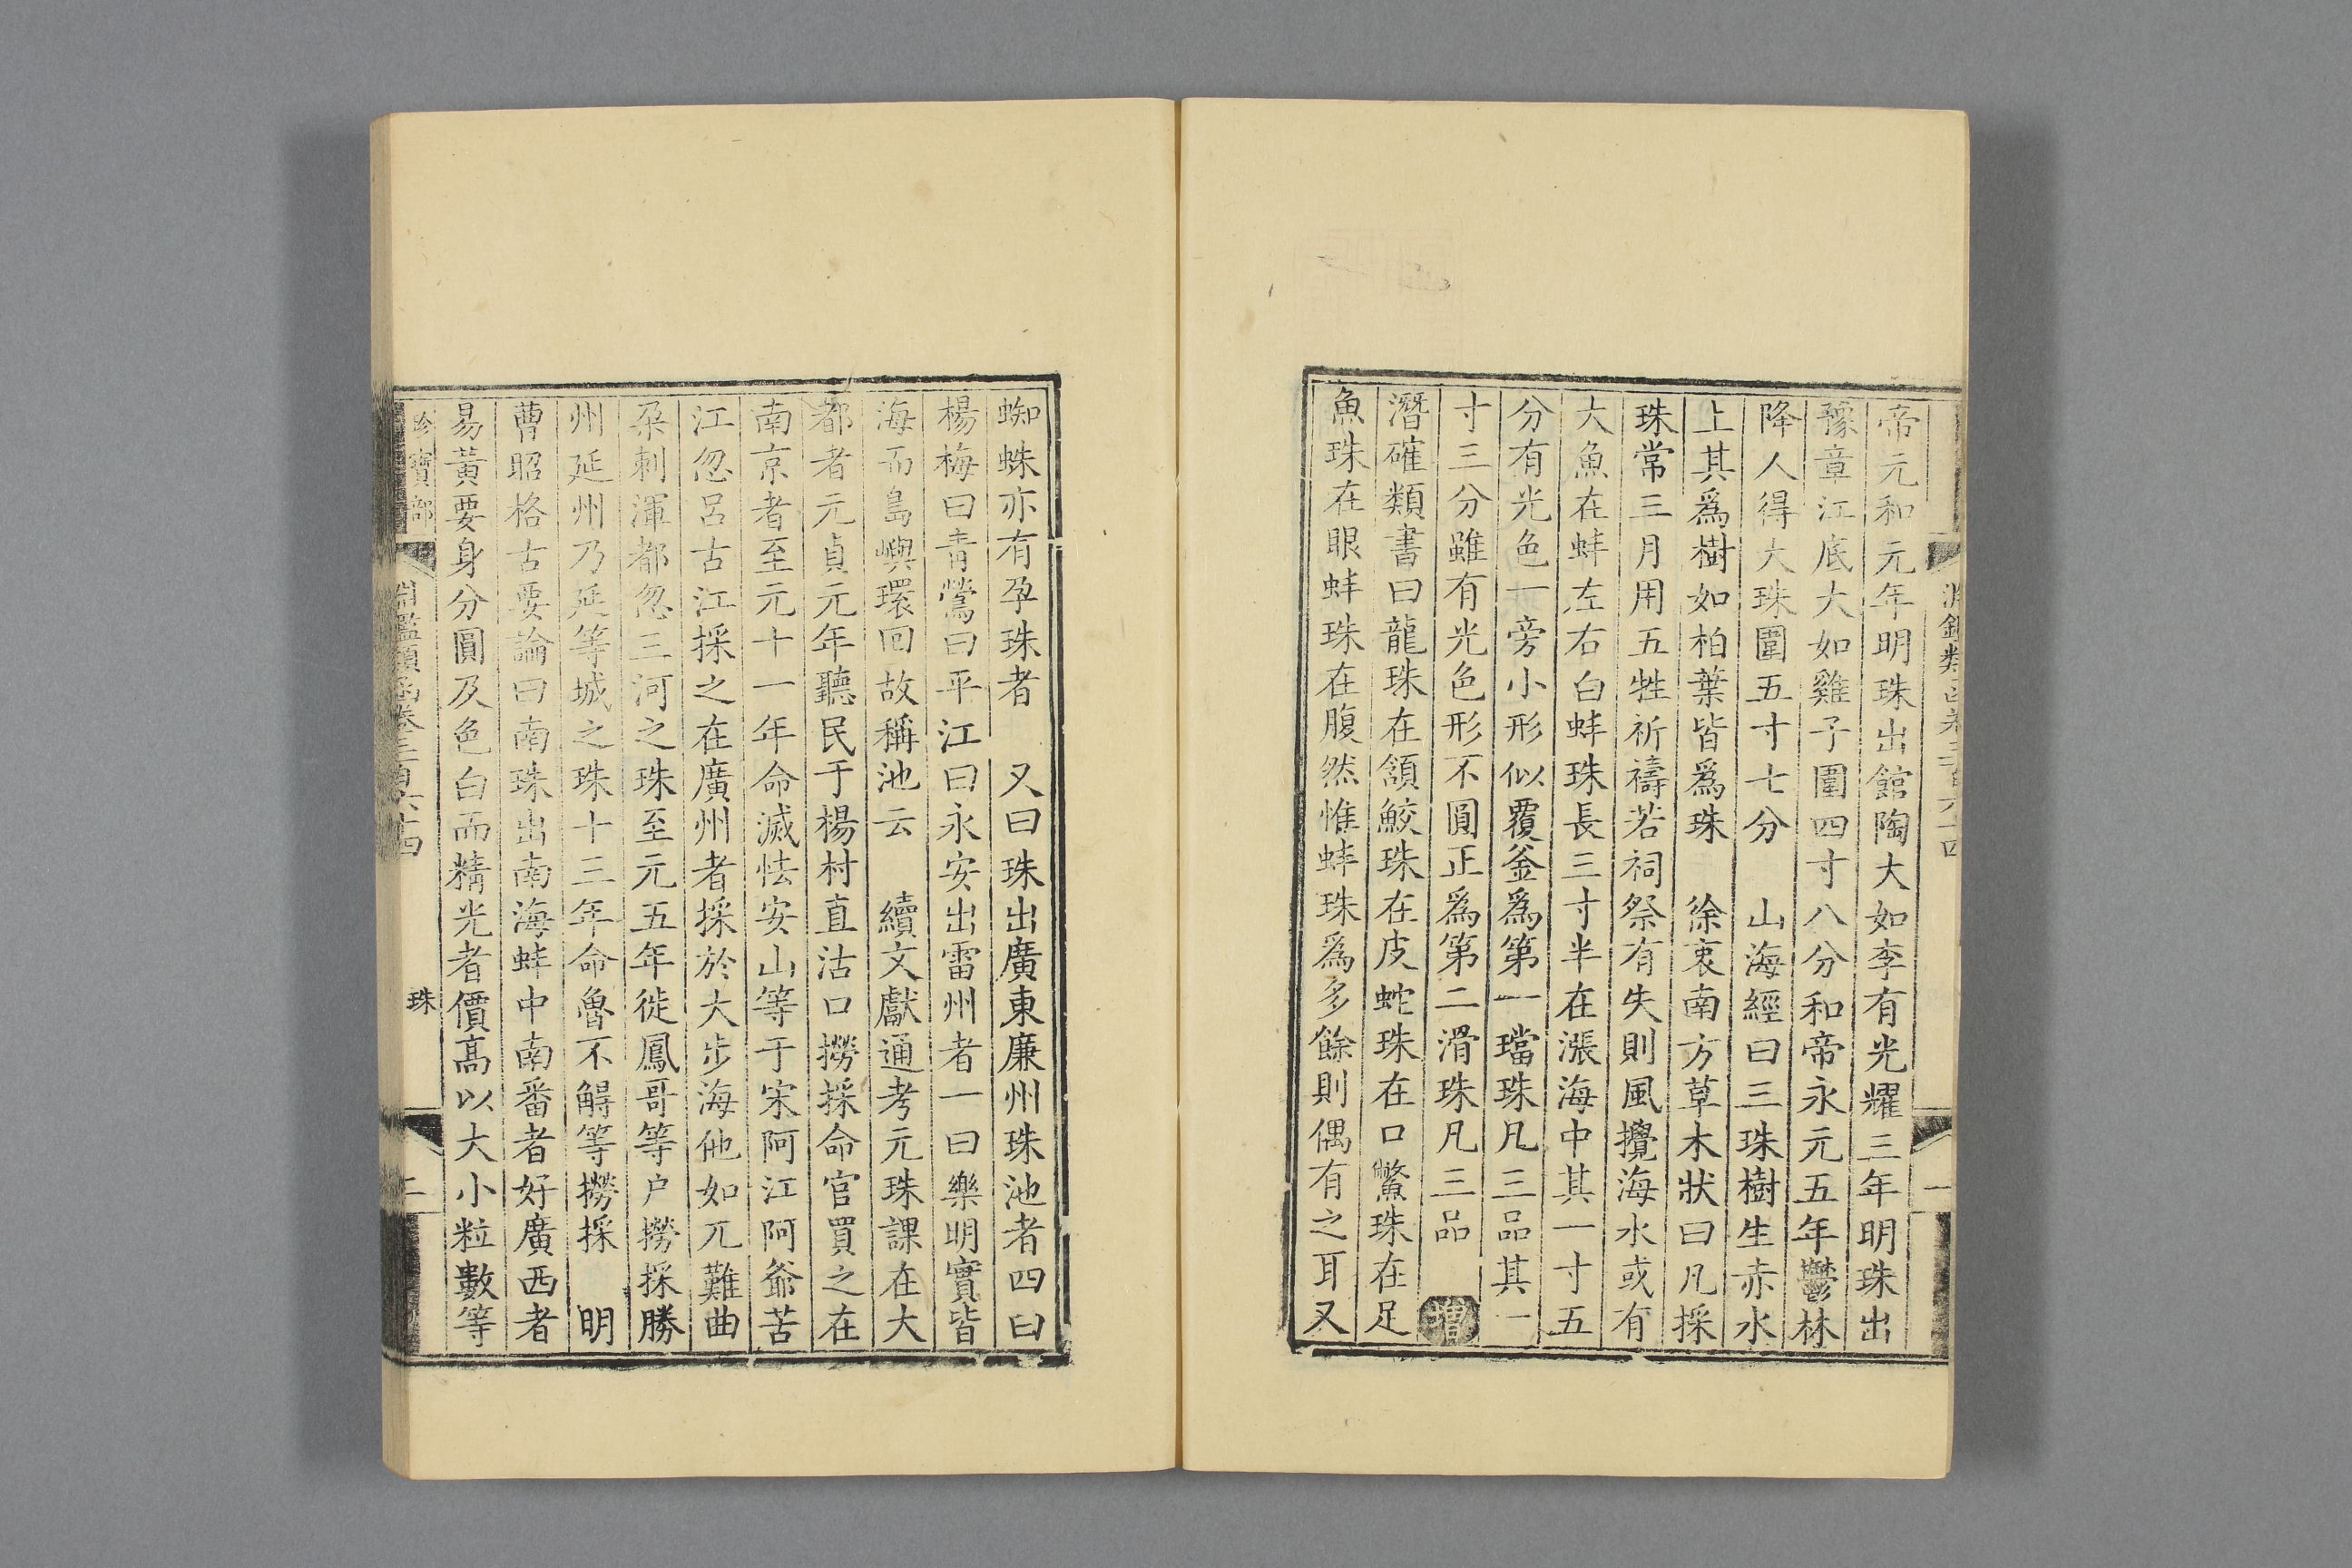 淵鑑類函卷三百六十四
一
帝元和元年明珠出館陶大如李有光耀三年明珠出
豫章江底大如雞子圍四寸八分和帝永元五年鬱林
降人得大珠圍五寸七分　山海經曰三珠樹生赤水
上其爲樹如柏葉皆爲珠　徐衷南方草木狀曰凡採
珠常三月用五牲祈禱若祠祭有失則風攪海水或有
大魚在蚌左右白蚌珠長三寸半在漲海中其一寸五
分有光色一旁小形似覆釜爲第一璫珠凡三品其一
寸三分雖有光色形不圓正爲第二滑珠凡三品　增
潛確類書曰龍珠在頷鮫珠在皮蛇珠在口鱉珠在足
魚珠在眼蚌珠在腹然惟蚌珠爲多餘則偶有之耳又
蜘蛛亦有孕珠者　又曰珠出廣東廉州珠池者四曰
楊梅曰青鶯曰平江曰永安出雷州者一曰樂明實皆
海而島嶼環回故稱池云　續文獻通考元珠課在大
都者元貞元年聽民于楊村直沽口撈採命官買之在
南京者至元十一年命滅怯安山等于宋阿江阿爺苦
江忽呂古江採之在廣州者採於大步海他如兀難曲
朶剌渾都忽三河之珠至元五年徙鳳哥等户撈採勝
州延州乃延等城之珠十三年命魯不䚟等撈採　明
曹昭格古要論曰南珠出南海蚌中南番者好廣西者
易黃要身分圓及色白而精光者價高以大小粒數等
珍寶部
淵鑑類函卷三百六十四
珠
二